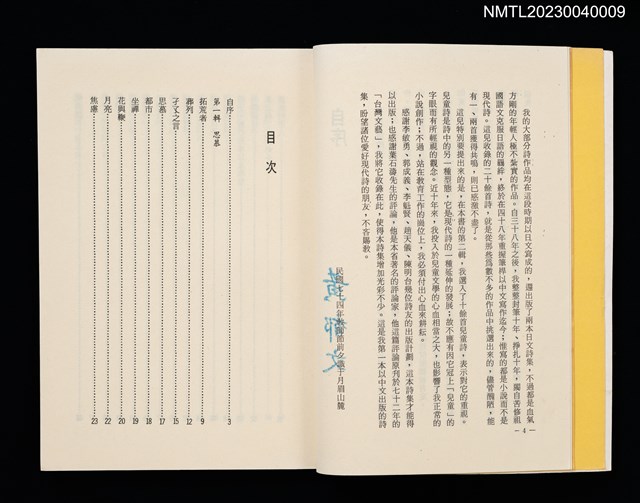 NMTL20230040009
我的大部分詩作品均在這段時期以日文寫成的，還出版了兩本日文詩集，不過都是血氣
方剛的年輕人極不紮實的作品。自三十八年之後，我整整封筆十年、掙扎十年，獨自苦修祖
國語文克服日語的羈絆，終於在四十八年重握筆桿以中文寫作迄今；惟寫的都是小說而不是
現代詩。這兒收錄的二十餘首詩，就是從那些為數不多的作品中挑選出來的，儘管醜陋，能
有一、兩首獲得共鳴，則已感激不盡了。
這兒特別要提出來的是，在本書的第二輯，我選入了十餘首兒童詩，表示對它的重視。
兒童詩是詩中的另一種型態，它是現代詩的一種延伸的發展；故不應有因它冠上「兒童」的
字眼而有所輕視的觀念。近十年來，我投入於兒童文學的心血相當之大，也影響了我正常的
小說創作；不過，站在教育工作的崗位上，我必須付出心血來耕耘。
感謝李敏勇、郭成義、李魁賢、趙天儀、陳明台幾位詩友的出版計劃，這本詩集才能得
以出版；也感謝葉石濤先生的評論，他是本省著名的評論家，他這篇評論原刊於七十二年的
「台灣文藝」，我將它收錄在此，使得本詩集增加光彩不少。這是我第一本以中文出版的詩
集，盼望諸位愛好現代詩的朋友，不吝賜教。
於月眉山麓
－4－
目次
自序 3
第一輯 思慕
拓荒者 9
葬列 12
孑孓之言 15
思慕 17
都市 18
坐禪 19
花與鞭 20
月亮 22
焦慮 23